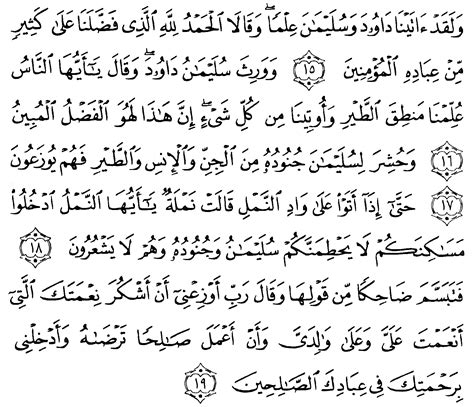 وَلَقَدْ ءَاتَيْنَا دَاوُۥدَ وَسُلَيْمَـٰنَ عِلْمًا ۖ وَقَالَا ٱلْحَمْدُ لِلَّهِ ٱلَّذِى فَضَّلَنَا عَلَىٰ كَثِيرٍ
مِّنْ عِبَادِهِ ٱلْمُؤْمِنِينَ ١٥ وَوَرِثَ سُلَيْمَـٰنُ دَاوُۥدَ ۖ وَقَالَ يَـٰٓأَيُّهَا ٱلنَّاسُ
عُلِّمْنَا مَنطِقَ ٱلطَّيْرِ وَأُوتِينَا مِن كُلِّ شَىْءٍ ۖ إِنَّ هَـٰذَا لَهُوَ ٱلْفَضْلُ ٱلْمُبِينُ
١٦ وَحُشِرَ لِسُلَيْمَـٰنَ جُنُودُهُۥ مِنَ ٱلْجِنِّ وَٱلْإِنسِ وَٱلطَّيْرِ فَهُمْ يُوزَعُونَ
١٧ حَتَّىٰٓ إِذَآ أَتَوْا۟ عَلَىٰ وَادِ ٱلنَّمْلِ قَالَتْ نَمْلَةٌ يَـٰٓأَيُّهَا ٱلنَّمْلُ ٱدْخُلُوا۟
مَسَـٰكِنَكُمْ لَا يَحْطِمَنَّكُمْ سُلَيْمَـٰنُ وَجُنُودُهُۥ وَهُمْ لَا يَشْعُرُونَ ١٨
فَتَبَسَّمَ ضَاحِكًا مِّن قَوْلِهَا وَقَالَ رَبِّ أَوْزِعْنِىٓ أَنْ أَشْكُرَ نِعْمَتَكَ ٱلَّتِىٓ
أَنْعَمْتَ عَلَىَّ وَعَلَىٰ وَٰلِدَىَّ وَأَنْ أَعْمَلَ صَـٰلِحًا تَرْضَىٰهُ وَأَدْخِلْنِى
بِرَحْمَتِكَ فِى عِبَادِكَ ٱلصَّـٰلِحِينَ ١٩